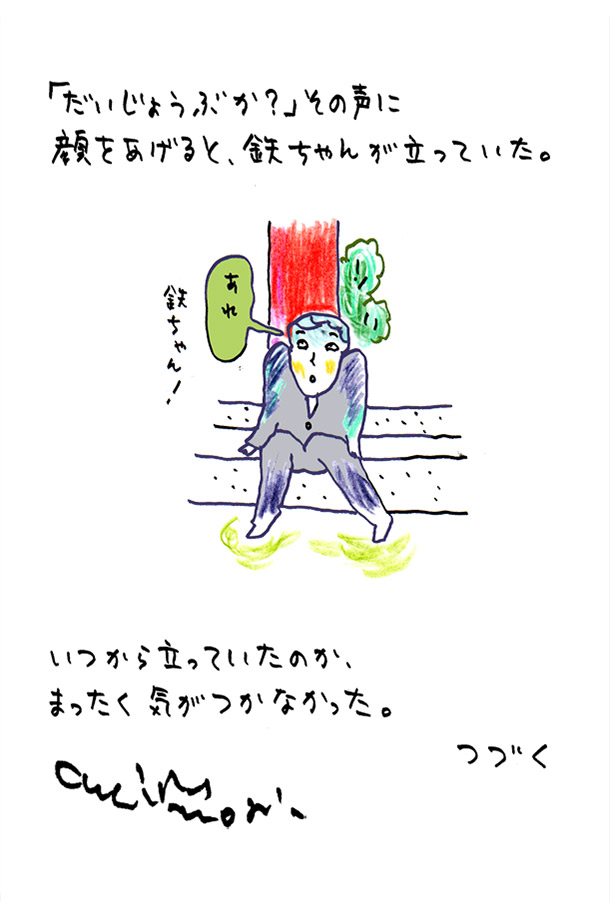 「だいじょうぶか？」その声に
顔をあげると、鉄ちゃんが立っていた。
あれ
鉄ちゃん！
いつから立っていたのか、
まったく気がつかなかった。
つづく